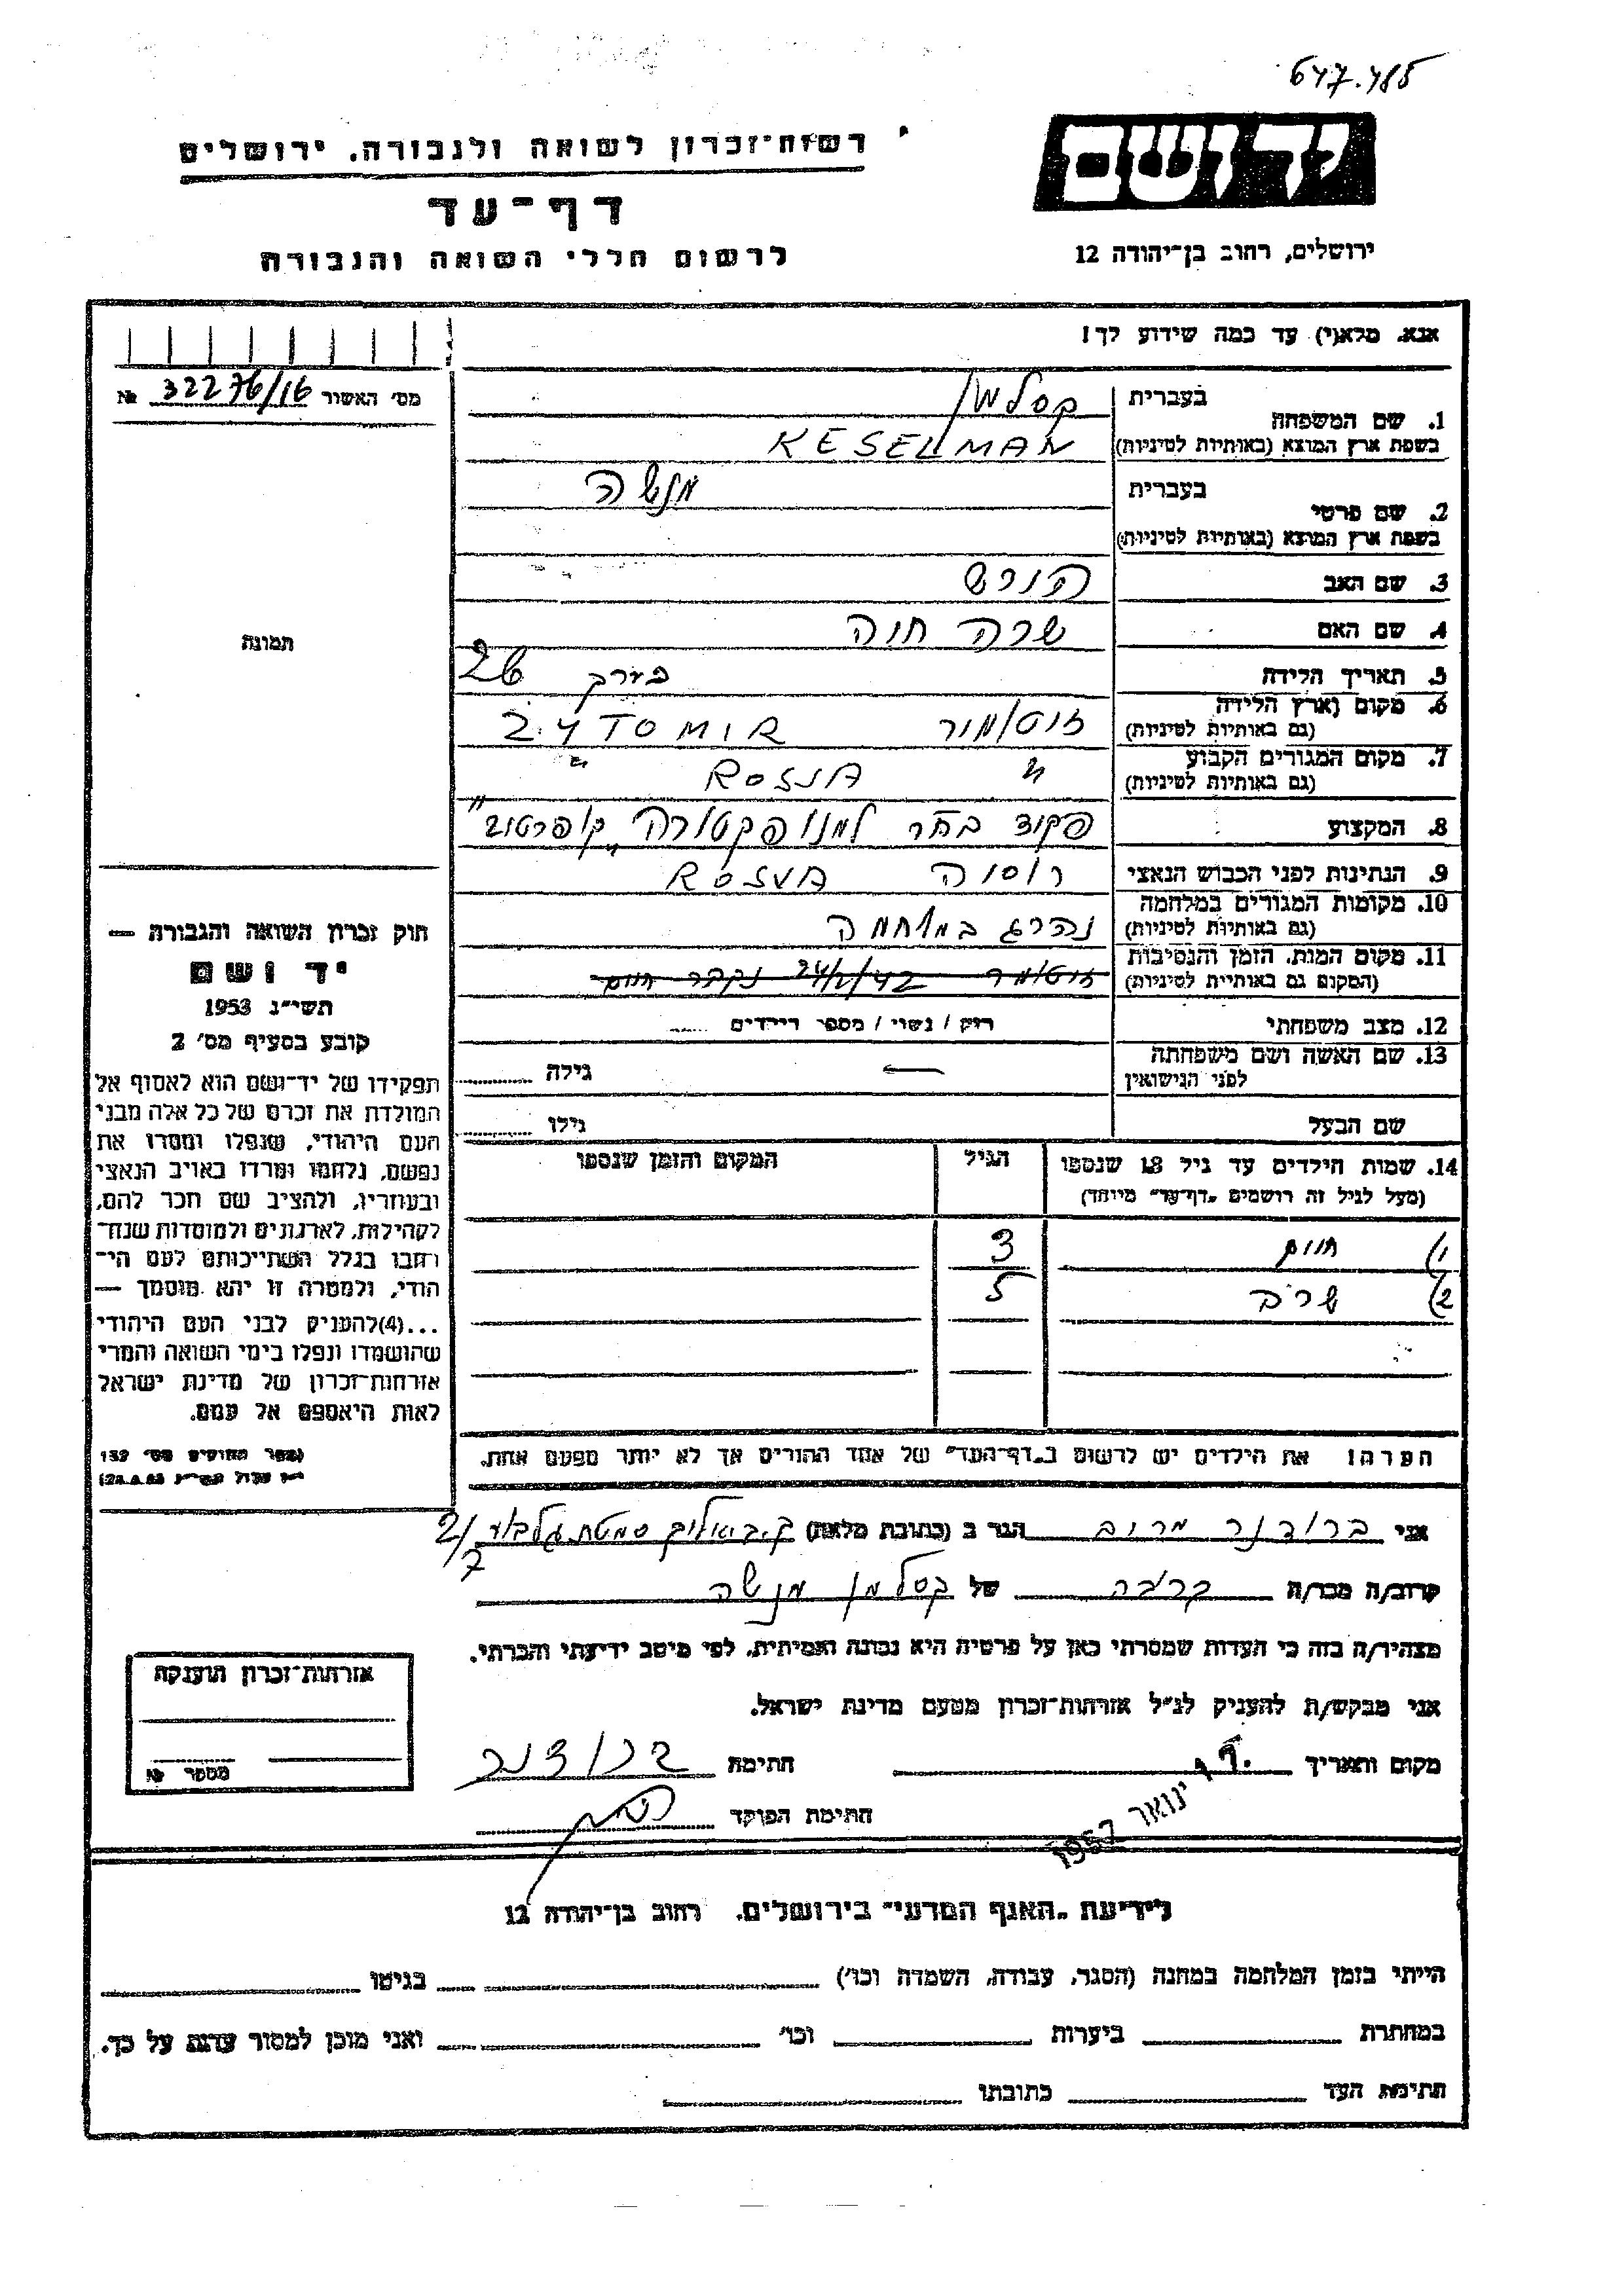 647.485
יד ושם
רשות־זכרון לשואה ולגבורה. ירושלים
דף־עד
ירושלים, רחוב בן־יהודה 12
לרשום חללי השואה והגבורה
אנא. מלא(י) עד כמה שידוע לך!
מס׳ האשור 32276/16 №
1. שם המשפחה בעברית קסלמן
בשפת ארץ המוצא (באותיות לטיניות) KESELMAN
2. שם פרטי בעברית מנשה
בשפת ארץ המוצא (באותיות לטיניות)
3. שם האב הירש
4. שם האם שרה חוה
תמונה
5. תאריך הלידה בערך
6. מקום (ארץ הלידה זיטומיר ZYTOMIR
(גם באותיות לטיניות)
7. מקום המגורים הקבוע " ROSIA "
(גם באותיות לטיניות)
8. המקצוע פקיד בחר למנופקטורה
9. הנתינות לפני הכבוש הנאצי רוסיה ROSYA
10. מקומות המגורים במלחמה נהרג במלחמה
(גם באותיות לטיניות)
11. מקום המות. הזמן והנסיבות
(המקום גם באותיות לטיניות)
12. מצב משפחתי רוק / נשוי / מספר הילדים
13. שם האשה ושם משפחתה — גילה
לפני הנישואין
שם הבעל גילו
14. שמות הילדים עד גיל 18 שנספו הגיל המקום והזמן שנספו
(מעל לגיל זה רושמים „דף־עד״ מיוחד)
1) חיים 3
2) 5
חוק זכרון השואה והגבורה —
יד ושם
תשי״ג 1953
קובע בסעיף מס׳ 2
תפקידו של יד־ושם הוא לאסוף אל
המולדת את זכרם של כל אלה מבני
העם היהודי, שנפלו ומסרו את
נפשם, נלחמו ומרדו באויב הנאצי
ובעוזריו, ולהציב שם וזכר להם,
לקהילות, לארגונים ולמוסדות שנח־
רחבו בגלל השתייכותם לעם הי־
הודי, ולמטרה זו יהא מוסמך —
...(4)להעניק לבני העם היהודי
שהושמדו ונפלו בימי השואה והמרי
אזרחות־זכרון של מדינת ישראל
לאות היאספם אל עמם.
(ספר החוקים מס׳ 132
הערה! את הילדים יש לרשום ב„דף־העד״ של אחד ההורים אך לא יותר מפעם אחת.
אני ברודנר מרים הגר ב (כתובת מלאה) ק. ביאליק סמטת גלבוע 2/7
קרוב/ה מכר/ה קרובה של קסלמן מנשה
מצהיר/ה בזה כי העדות שמסרתי כאן על פרטיה היא נכונה ואמיתית. לפי מיטב ידיעתי והכרתי.
אני מבקש/ת להעניק לנ״ל אזרחות־זכרון מטעם מדינת ישראל.
מקום ותאריך ינואר 1957 חתימה ברודנר
חתימת הפוקד
אזרחות־זכרון הוענקה
מספר №
לידיעת „האגף המדעי״ בירושלים. רחוב בן־יהודה 12
הייתי בזמן המלחמה במחנה (הסגר, עבודה, השמדה וכו׳) בגיטו
במחתרת ביערות וכו׳ ואני מוכן למסור עדות על כך.
חתימת העד כתובתו